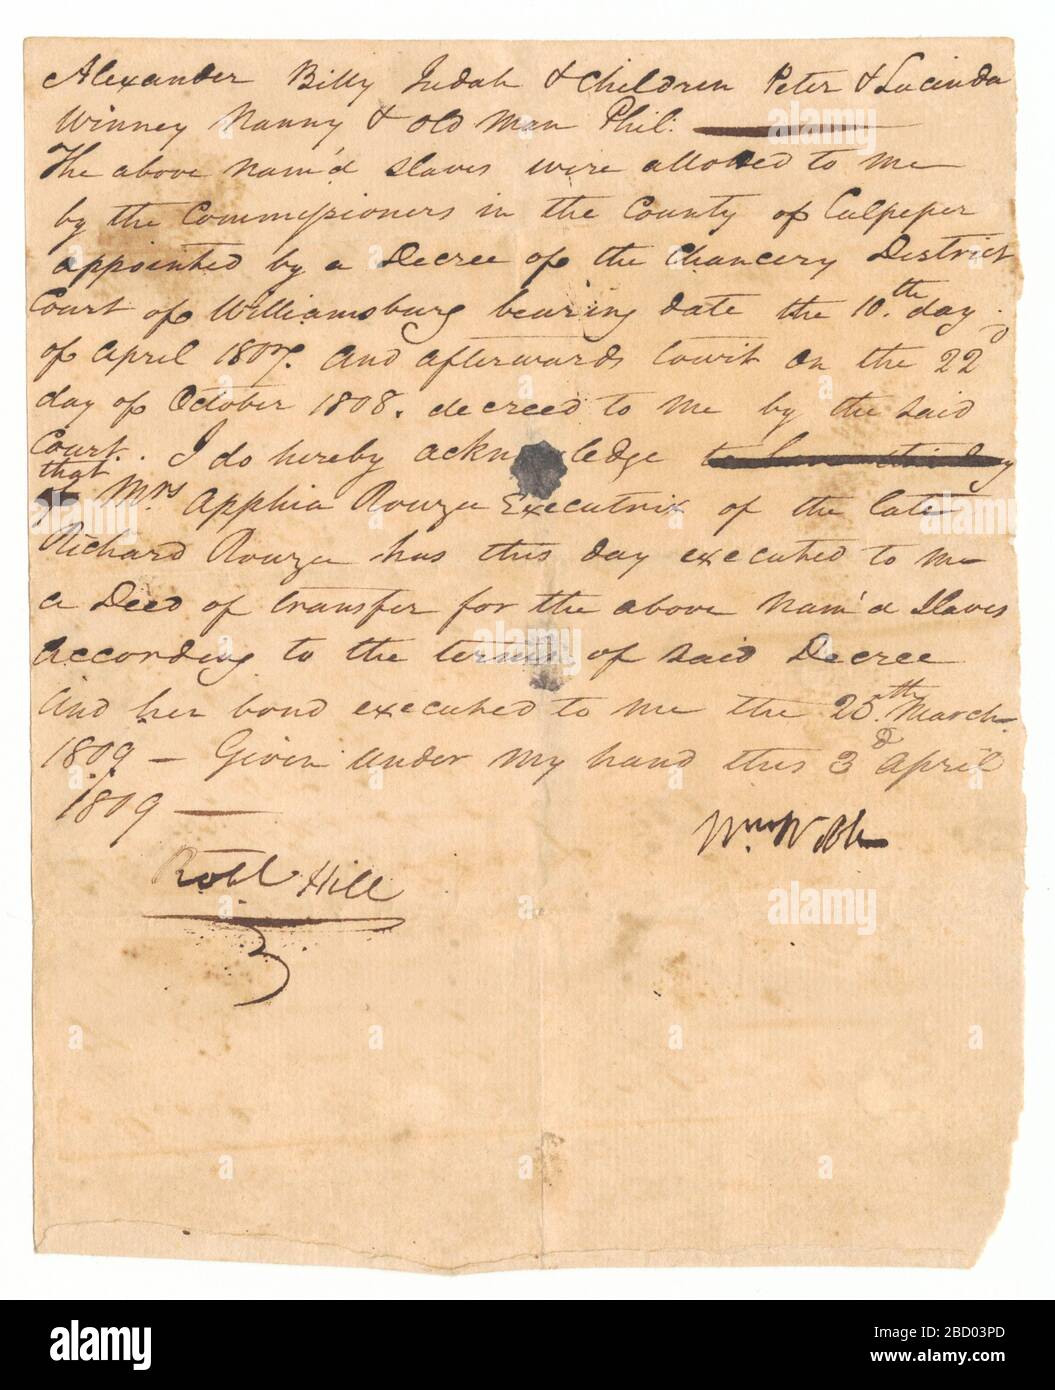 Alexander Billy Judah & Children Peter & Lucinda
Winney Nanny & old Man Phil:
The above nam'd slaves were allotted to me
by the Commissioners in the County of Culpeper
appointed by a Decree of the Chancery District
Court of Williamsburg bearing date the 10.th day
of April 1807. And afterwards Court on the 22d
day of October 1808. decreed to me by the said
Court. I do hereby acknowledge to have this day
that
of Mrs Apphia Rouzee Executrix of the late
Richard Rouzee has this day executed to me
a Deed of transfer for the above nam'd slaves
according to the terms of said Decree
And her bond executed to me the 25.th March
1809 — Given under my hand this 3d April
1809 —
Wm Webb
Robt. Hill
alamy
Image ID: 2BD03PD
www.alamy.com